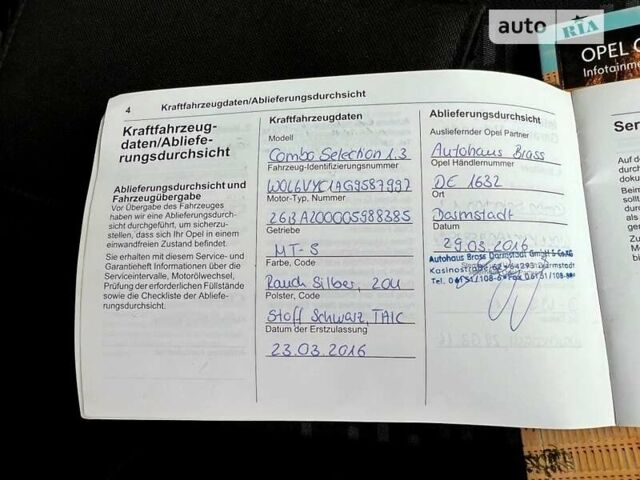 auto RIA
OPEL
Infotainmen
4 Kraftfahrzeugdaten/Ablieferungsdurchsicht
Kraftfahrzeug-
daten/Abliefe-
rungsdurchsicht
Ablieferungsdurchsicht und
Fahrzeugübergabe
Vor Übergabe des Fahrzeuges
haben wir eine Ablieferungsdurch-
sicht durchgeführt, um sicherzu-
stellen, dass sich Ihr Opel in einem
einwandfreien Zustand befindet.
Sie erhalten mit diesem Service- und
Garantieheft Informationen über die
Serviceintervalle, Motorölwechsel,
Prüfung der erforderlichen Füllstände
sowie die Checkliste der Abliefe-
rungsdurchsicht.
Kraftfahrzeugdaten
Modell
Combo Selection 1.3
Fahrzeug-Identifizierungsnummer
W0L6VYC1AG9587997
Motor-Typ, Nummer
263A200005988385
Getriebe
MT-5
Farbe, Code
Rauch Silber, 204
Polster, Code
Stoff Schwarz, TAIC
Datum der Erstzulassung
23.03.2016
Ablieferungsdurchsicht
Ausliefernder Opel Partner
Autohaus Brass
Opel Händlernummer
DE 1632
Ort
Darmstadt
Datum
29.03.2016
Autohaus Brass Darmstadt GmbH & Co. KG
Kasinostraße 62 64293 Darmstadt
Tel. 06151/108-0 Fax 06151/108-
Ser